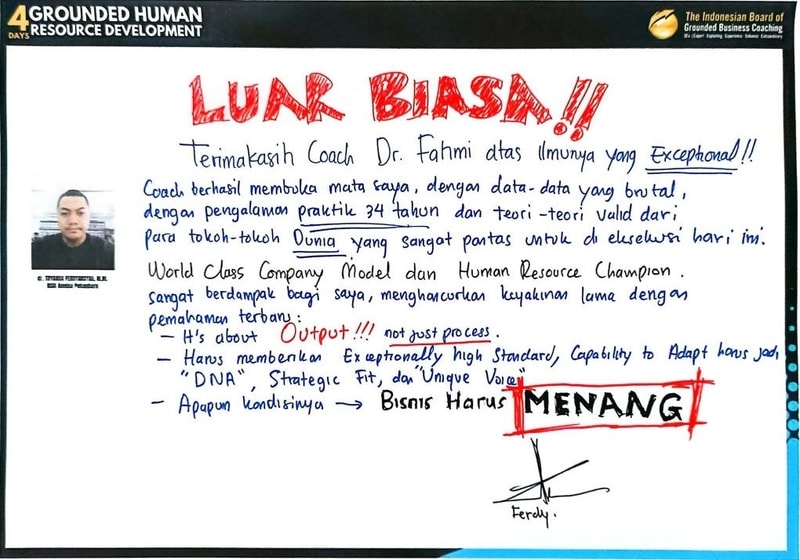 4 DAYS GROUNDED HUMAN
RESOURCE DEVELOPMENT
The Indonesian Board of
Grounded Business Coaching
LUAR BIASA!!
Terimakasih Coach Dr. Fahmi atas Ilmunya yang Exceptional!!
Coach berhasil membuka mata saya, dengan data-data yang brutal,
dengan pengalaman praktik 34 tahun dan teori-teori valid dari
para tokoh-tokoh Dunia yang sangat pantas untuk di eksekusi hari ini.
World Class Company Model dan Human Resource Champion.
sangat berdampak bagi saya, menghancurkan keyakinan lama dengan
pemahaman terbaru:
- It's about Output!!! not just process.
- Harus memberikan Exceptionally high Standard, Capability to Adapt harus jadi
"DNA", Strategic Fit, dan "Unique Voice"
- Apapun kondisinya → Bisnis Harus MENANG
Ferdy.